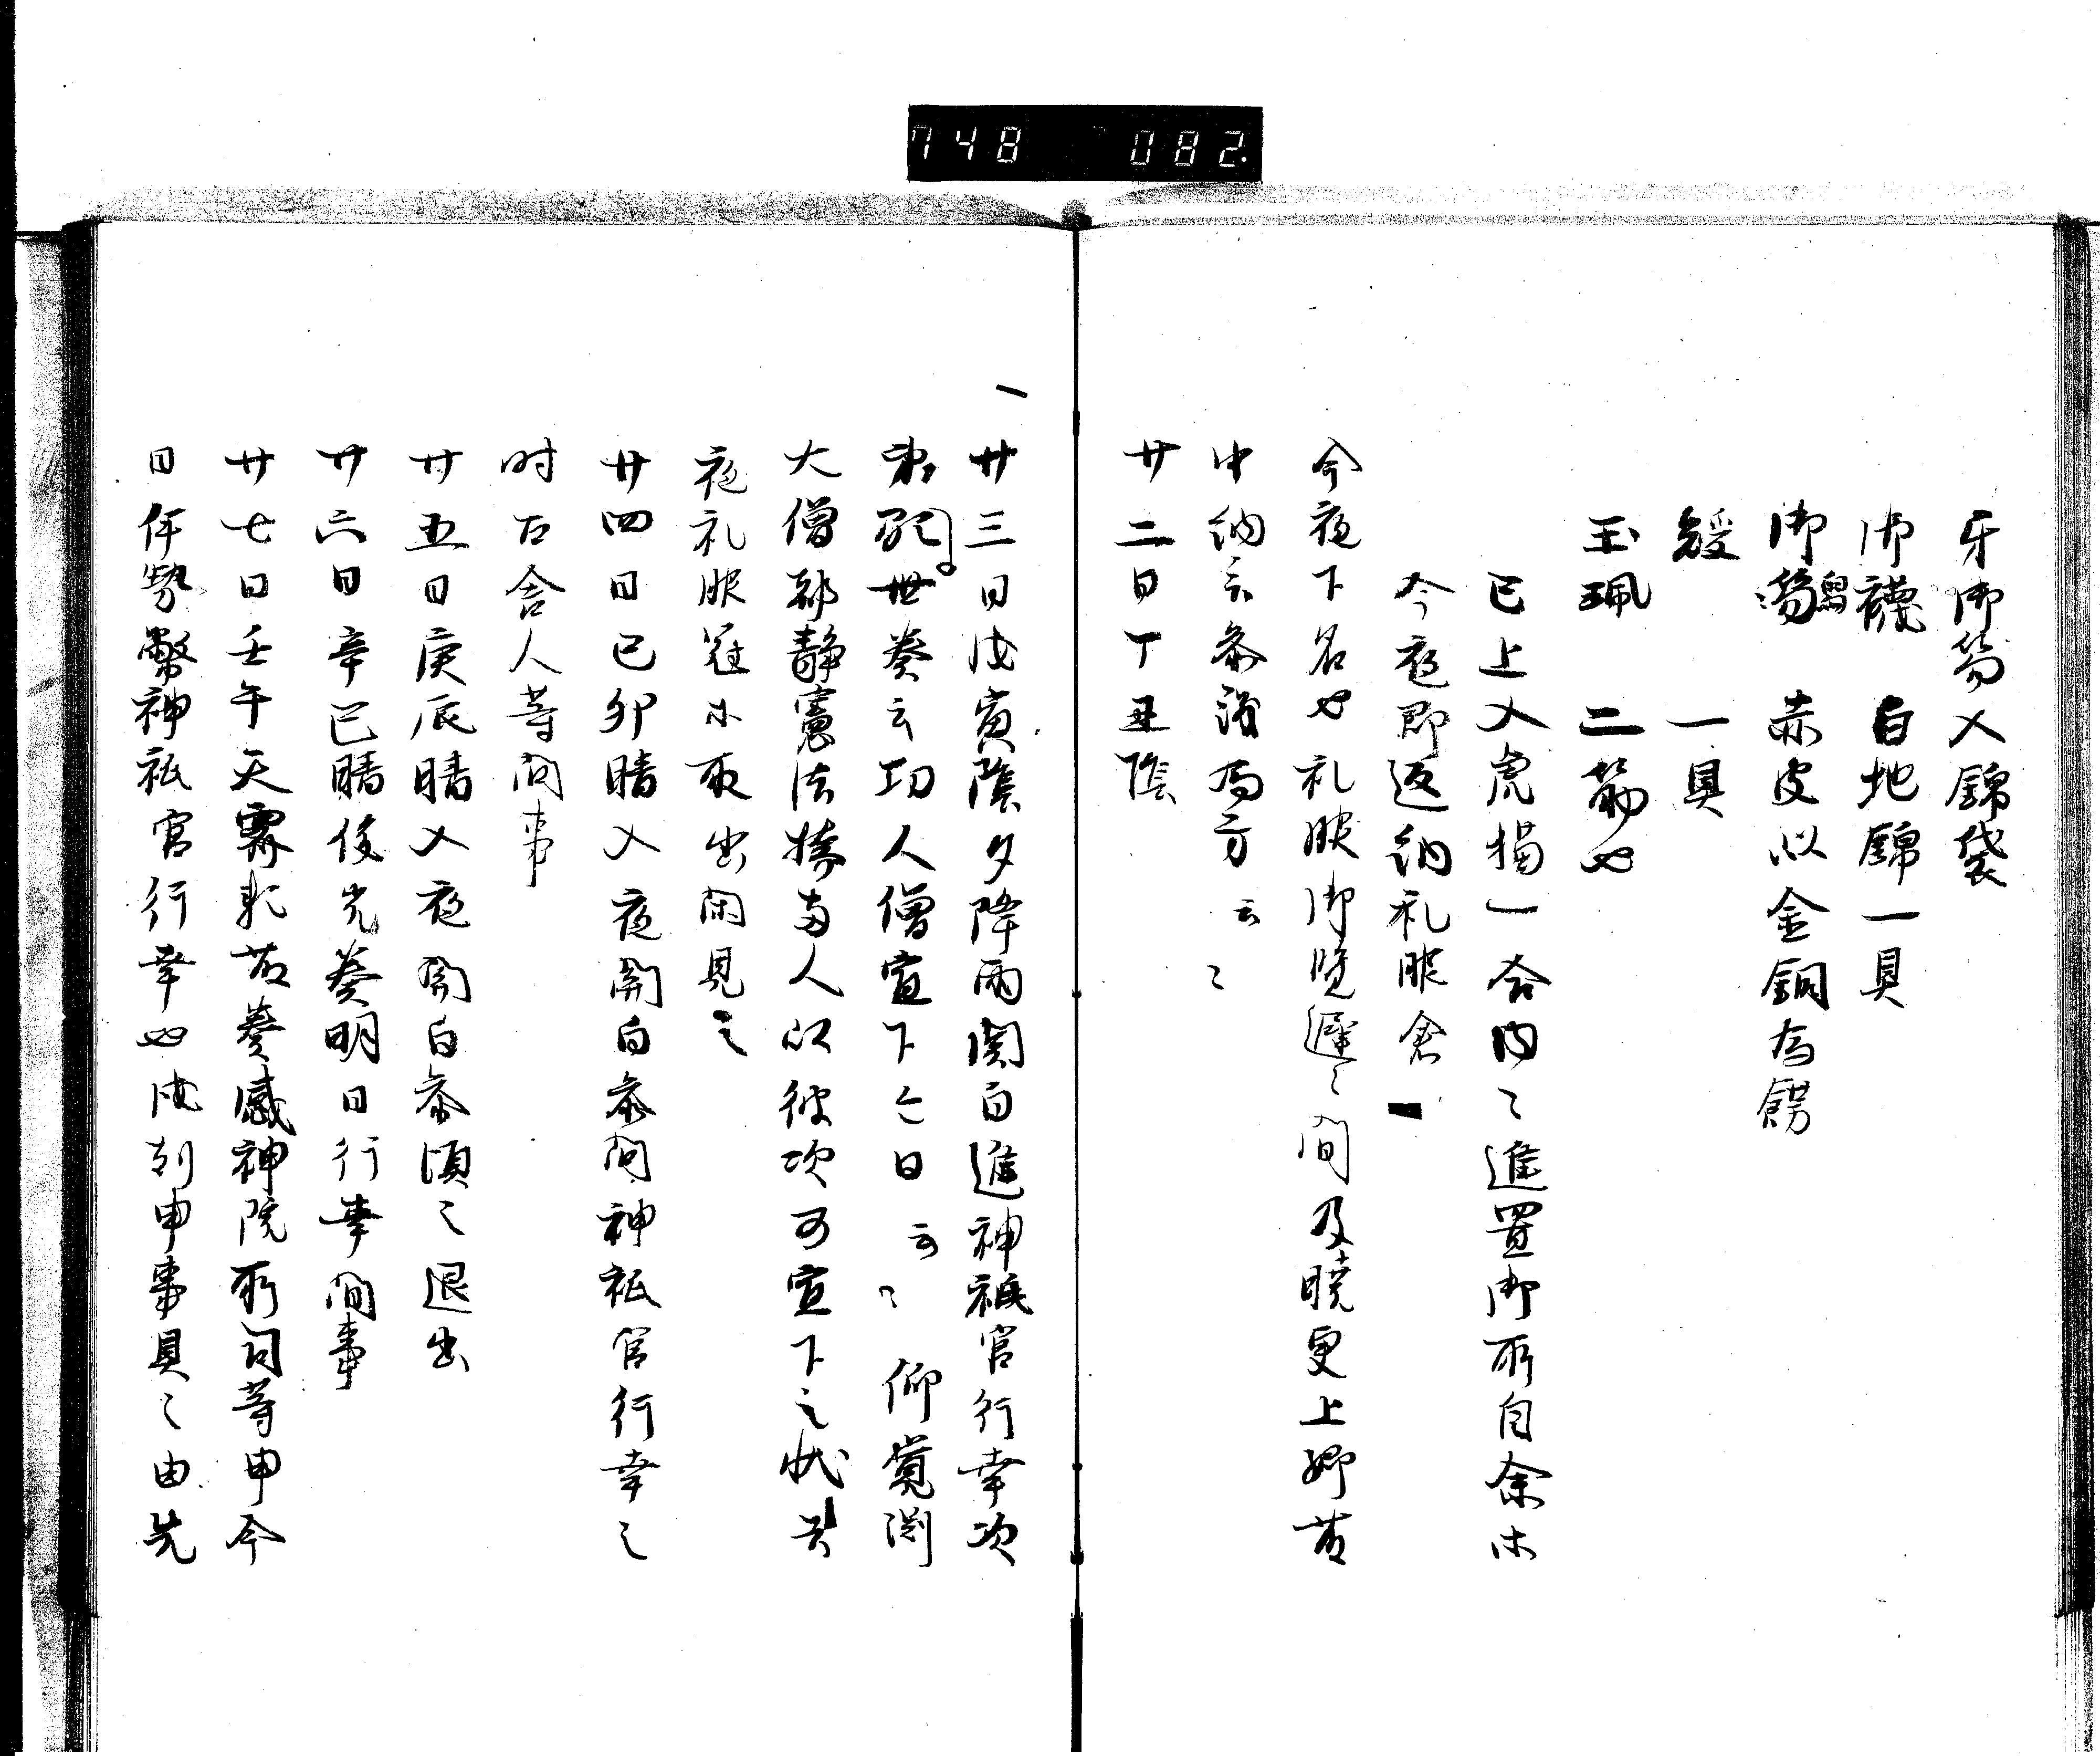 748 082
牙御笏入錦袋
御襪 白地錦一具
御舄 赤皮以金銅為餝
綬 一具
玉珮 二筋也
已上入虎樻一合内々進置御所自余木
今夜即返納礼服倉
今夜下名也礼服御覧遅々間及暁更上卿
中納言参 云々
廿二日丁丑陰
廿三日戊寅陰夕降雨関白進神祇官行幸次
第 世奏云功人僧宣下亡日云々仰覚渕
大僧都静憲法橋両人以彼次可宣下之状
夜礼服冠小取出開見之
廿四日己卯晴入夜関白参問神祇官行幸之
时召舎人等間事
廿五日庚辰晴入夜関白参頃之退出
廿六日辛巳晴後光奏明日行幸間事
廿七日壬午天霽 奏感神院所司等申今
日伊勢幣神祇官行幸也 列申事具之由先